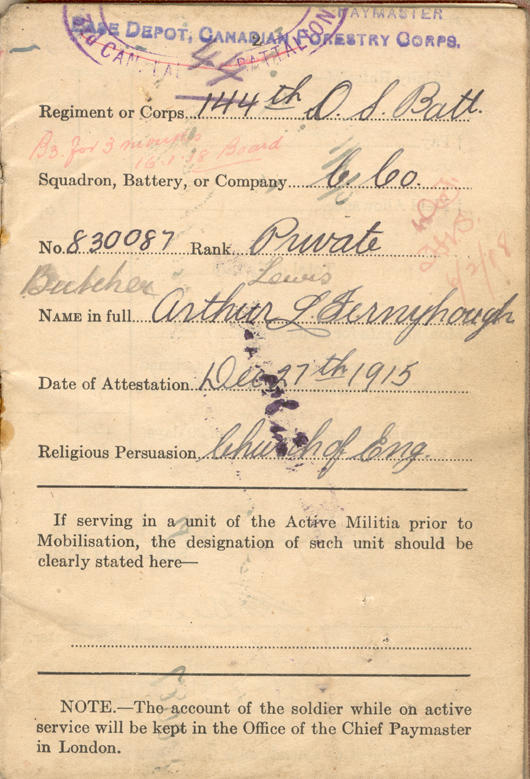 PAYMASTER
BASE DEPOT, CANADIAN FORESTRY CORPS.
CAN. BATTALION
Regiment or Corps 144th O. S. Batt.
B3 for 3 months
16.1.18 Board
Squadron, Battery, or Company C Co.
No. 830087 Rank Private
Butcher Lewis
NAME in full Arthur L. Fernyhough
Date of Attestation Dec 27th 1915
Religious Persuasion Church of Eng.
If serving in a unit of the Active Militia prior to
Mobilisation, the designation of such unit should be
clearly stated here—
NOTE.—The account of the soldier while on active
service will be kept in the Office of the Chief Paymaster
in London.